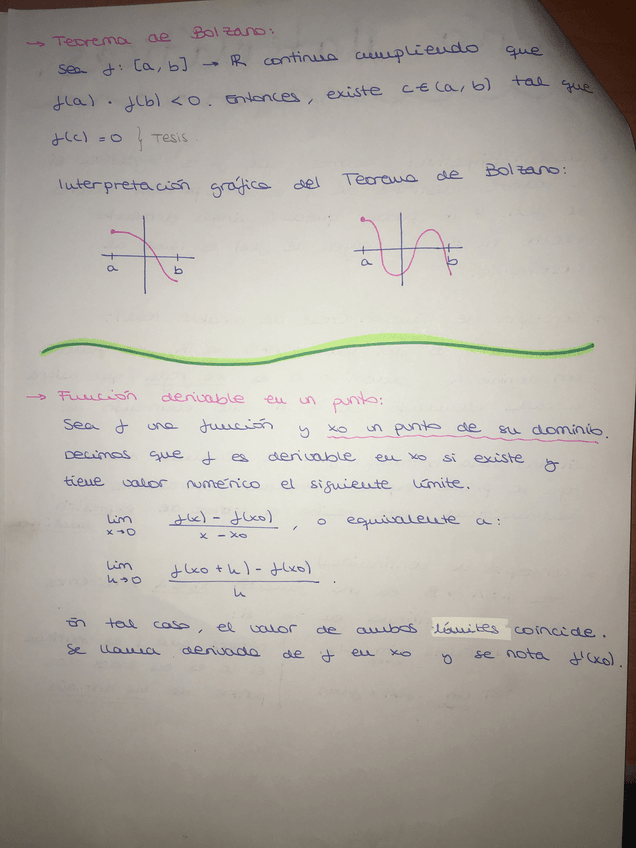 → Teorema de Bolzano:
Sea f: [a, b] → ℝ continua cumpliendo que
f(a) · f(b) < 0. Entonces, existe c ∈ (a, b) tal que
f(c) = 0 } Tesis
Interpretación gráfica del Teorema de Bolzano:
a b a b
→ Función derivable en un punto:
Sea f una función y x0 un punto de su dominio.
Decimos que f es derivable en x0 si existe y
tiene valor numérico el siguiente límite.
lim x→0 f(x) - f(x0) / x - x0 , o equivalente a:
lim h→0 f(x0 + h) - f(x0) / h .
En tal caso, el valor de ambos límites coincide.
Se llama derivada de f en x0 y se nota f'(x0).